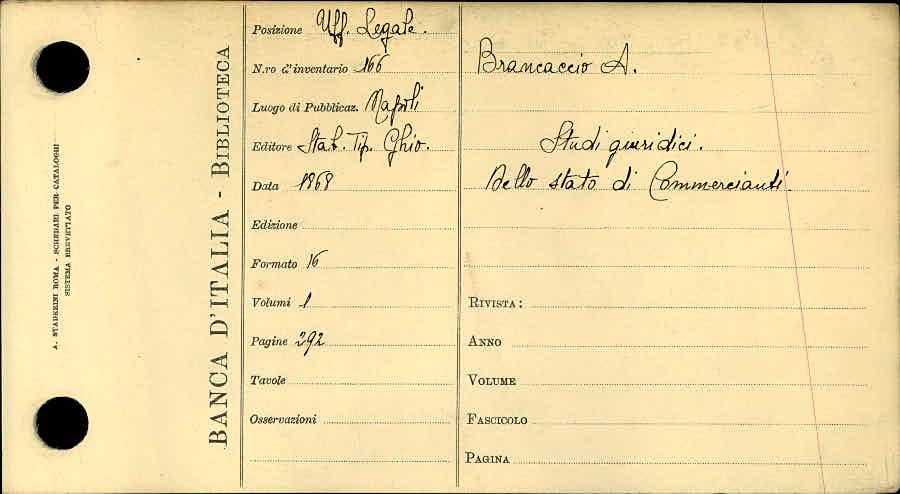 A. STADERINI ROMA - SCHEDARI PER CATALOGHI
SISTEMA BREVETTATO
BANCA D'ITALIA - BIBLIOTECA
Posizione Uff. Legale.
N.ro d'inventario 166
Luogo di Pubblicaz. Napoli
Editore Stab. Tip. Ghio.
Data 1868
Edizione
Formato 16
Volumi 1
Pagine 292
Tavole
Osservazioni
Brancaccio A.
Studi giuridici.
Dello stato di Commercianti.
RIVISTA:
ANNO
VOLUME
FASCICOLO
PAGINA